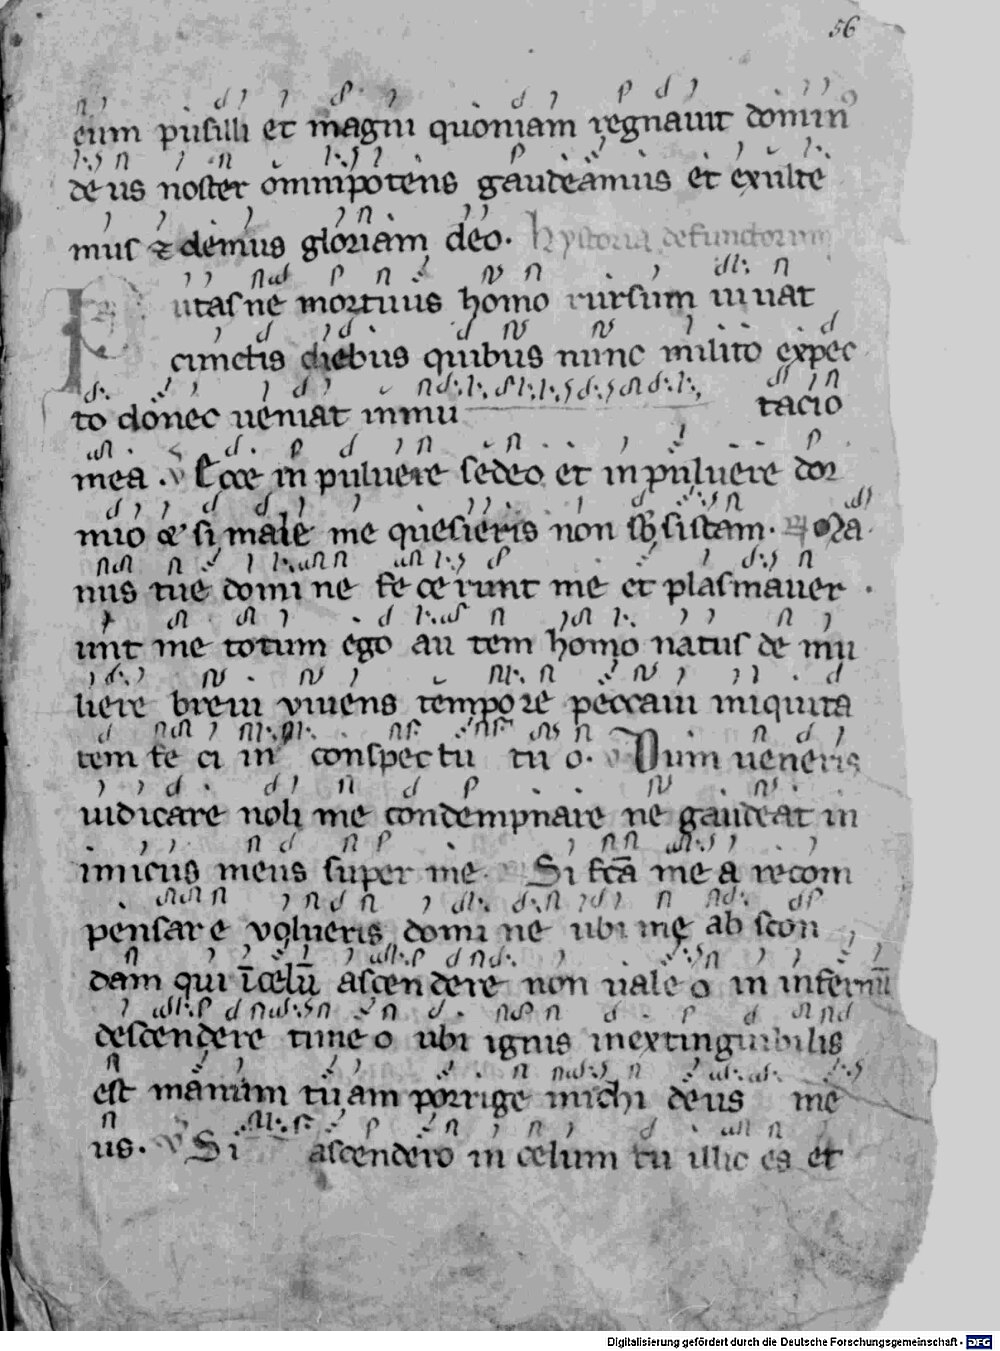 56
eum pusilli et magni quoniam regnauit domin⁹
deus noster omnipotens gaudeamus et exulte
mus & demus gloriam deo. hystoria defunctorum
Putasne mortuus homo rursum uiuat
cunctis diebus quibus nunc milito expec
to donec ueniat inmu tacio
mea. v Ecce in puluere sedeo et in puluere dor
mio & si mane me quesieris non subsistam. Ma
nus tue domine fecerunt me et plasmauer
unt me totum ego autem homo natus de mu
liere breui uiuens tempore peccaui iniquita
tem feci in conspectu tuo. v Dum ueneris
iudicare noli me condempnare ne gaudeat in
imicus meus super me. Si fcā me a recom
pensare volueris domine ubi me abscon
dam qui ī celū ascendere non ualeo in infernū
descendere timeo ubi ignis inextinguibilis
est manum tuam porrige michi deus me
us. v Si ascendero in celum tu illic es et
Digitalisierung gefördert durch die Deutsche Forschungsgemeinschaft - DFG